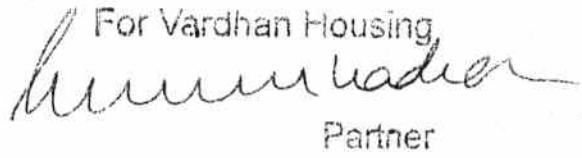 For Vardhan Housing
Partner